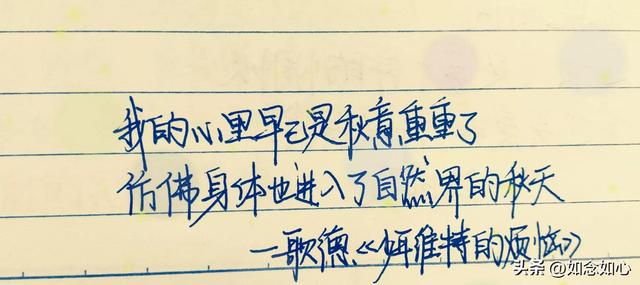 我的心里早已是秋意重重了
仿佛身体也进入了自然界的秋天
—歌德《少年维特的烦恼》
头条 @如念如心